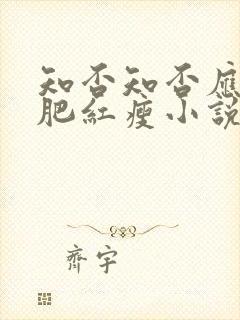 知否知否應
肥紅瘦小說
齊宇